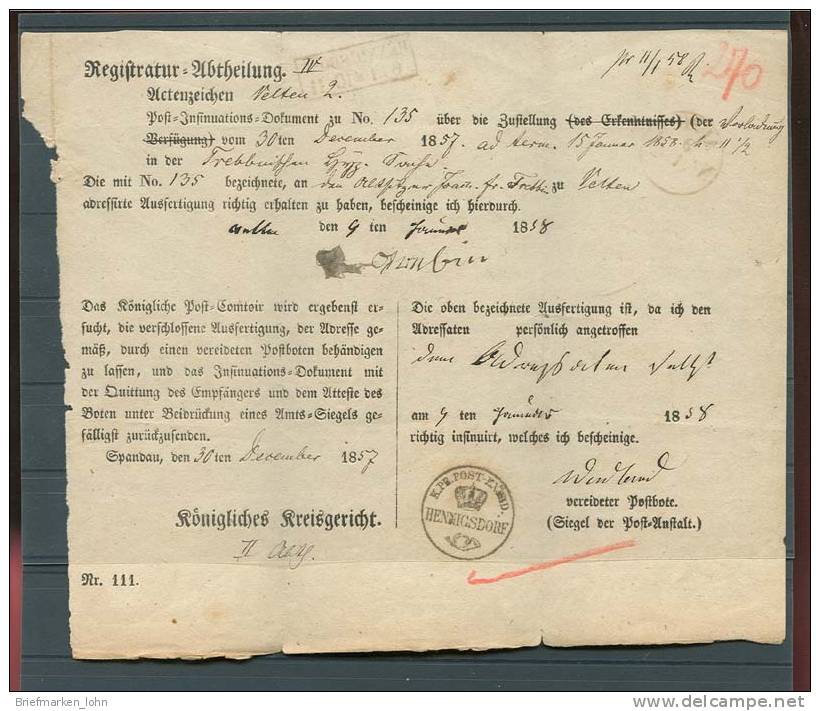 pr 11/1 58
270
Registratur-Abtheilung. IV
Actenzeichen Velten 2.
Post-Insinuations-Dokument zu No. 135 über die Zustellung (des Erkenntnisses) (der Verordnung
Verfügung) vom 30ten December 1857. ad term. 15 Januar 1858. h. 11 1/2
in der Trebbinschen Hyp. Sache
Die mit No. 135 bezeichnete, an den Joach. fr. Trebbin zu Velten
adressirte Ausfertigung richtig erhalten zu haben, bescheinige ich hierdurch.
den 9 ten Januar 1858
Das Königliche Post-Comtoir wird ergebenst er-
sucht, die verschlossene Ausfertigung, der Adresse ge-
mäß, durch einen vereideten Postboten behändigen
zu lassen, und das Insinuations-Dokument mit
der Quittung des Empfängers und dem Atteste des
Boten unter Beidrückung eines Amts-Siegels ge-
fälligst zurückzusenden.
Spandau, den 30ten December 1857
Königliches Kreisgericht.
II Abth.
Nr. 111.
Die oben bezeichnete Ausfertigung ist, da ich den
Adressaten persönlich angetroffen
dem Adressaten selbst
am 9 ten Januar 1858
richtig insinuirt, welches ich bescheinige.
vereideter Postbote.
(Siegel der Post-Anstalt.)
K. PR. POST-EXPED.
HENNIGSDORF
Briefmarken_lohn
delcampe.net